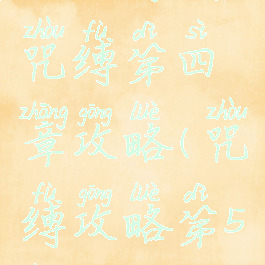 zhòu fù dì sì
咒缚第四
zhāng gōng lüè zhòu
章攻略(咒
fù gōng lüè dì
缚攻略第5